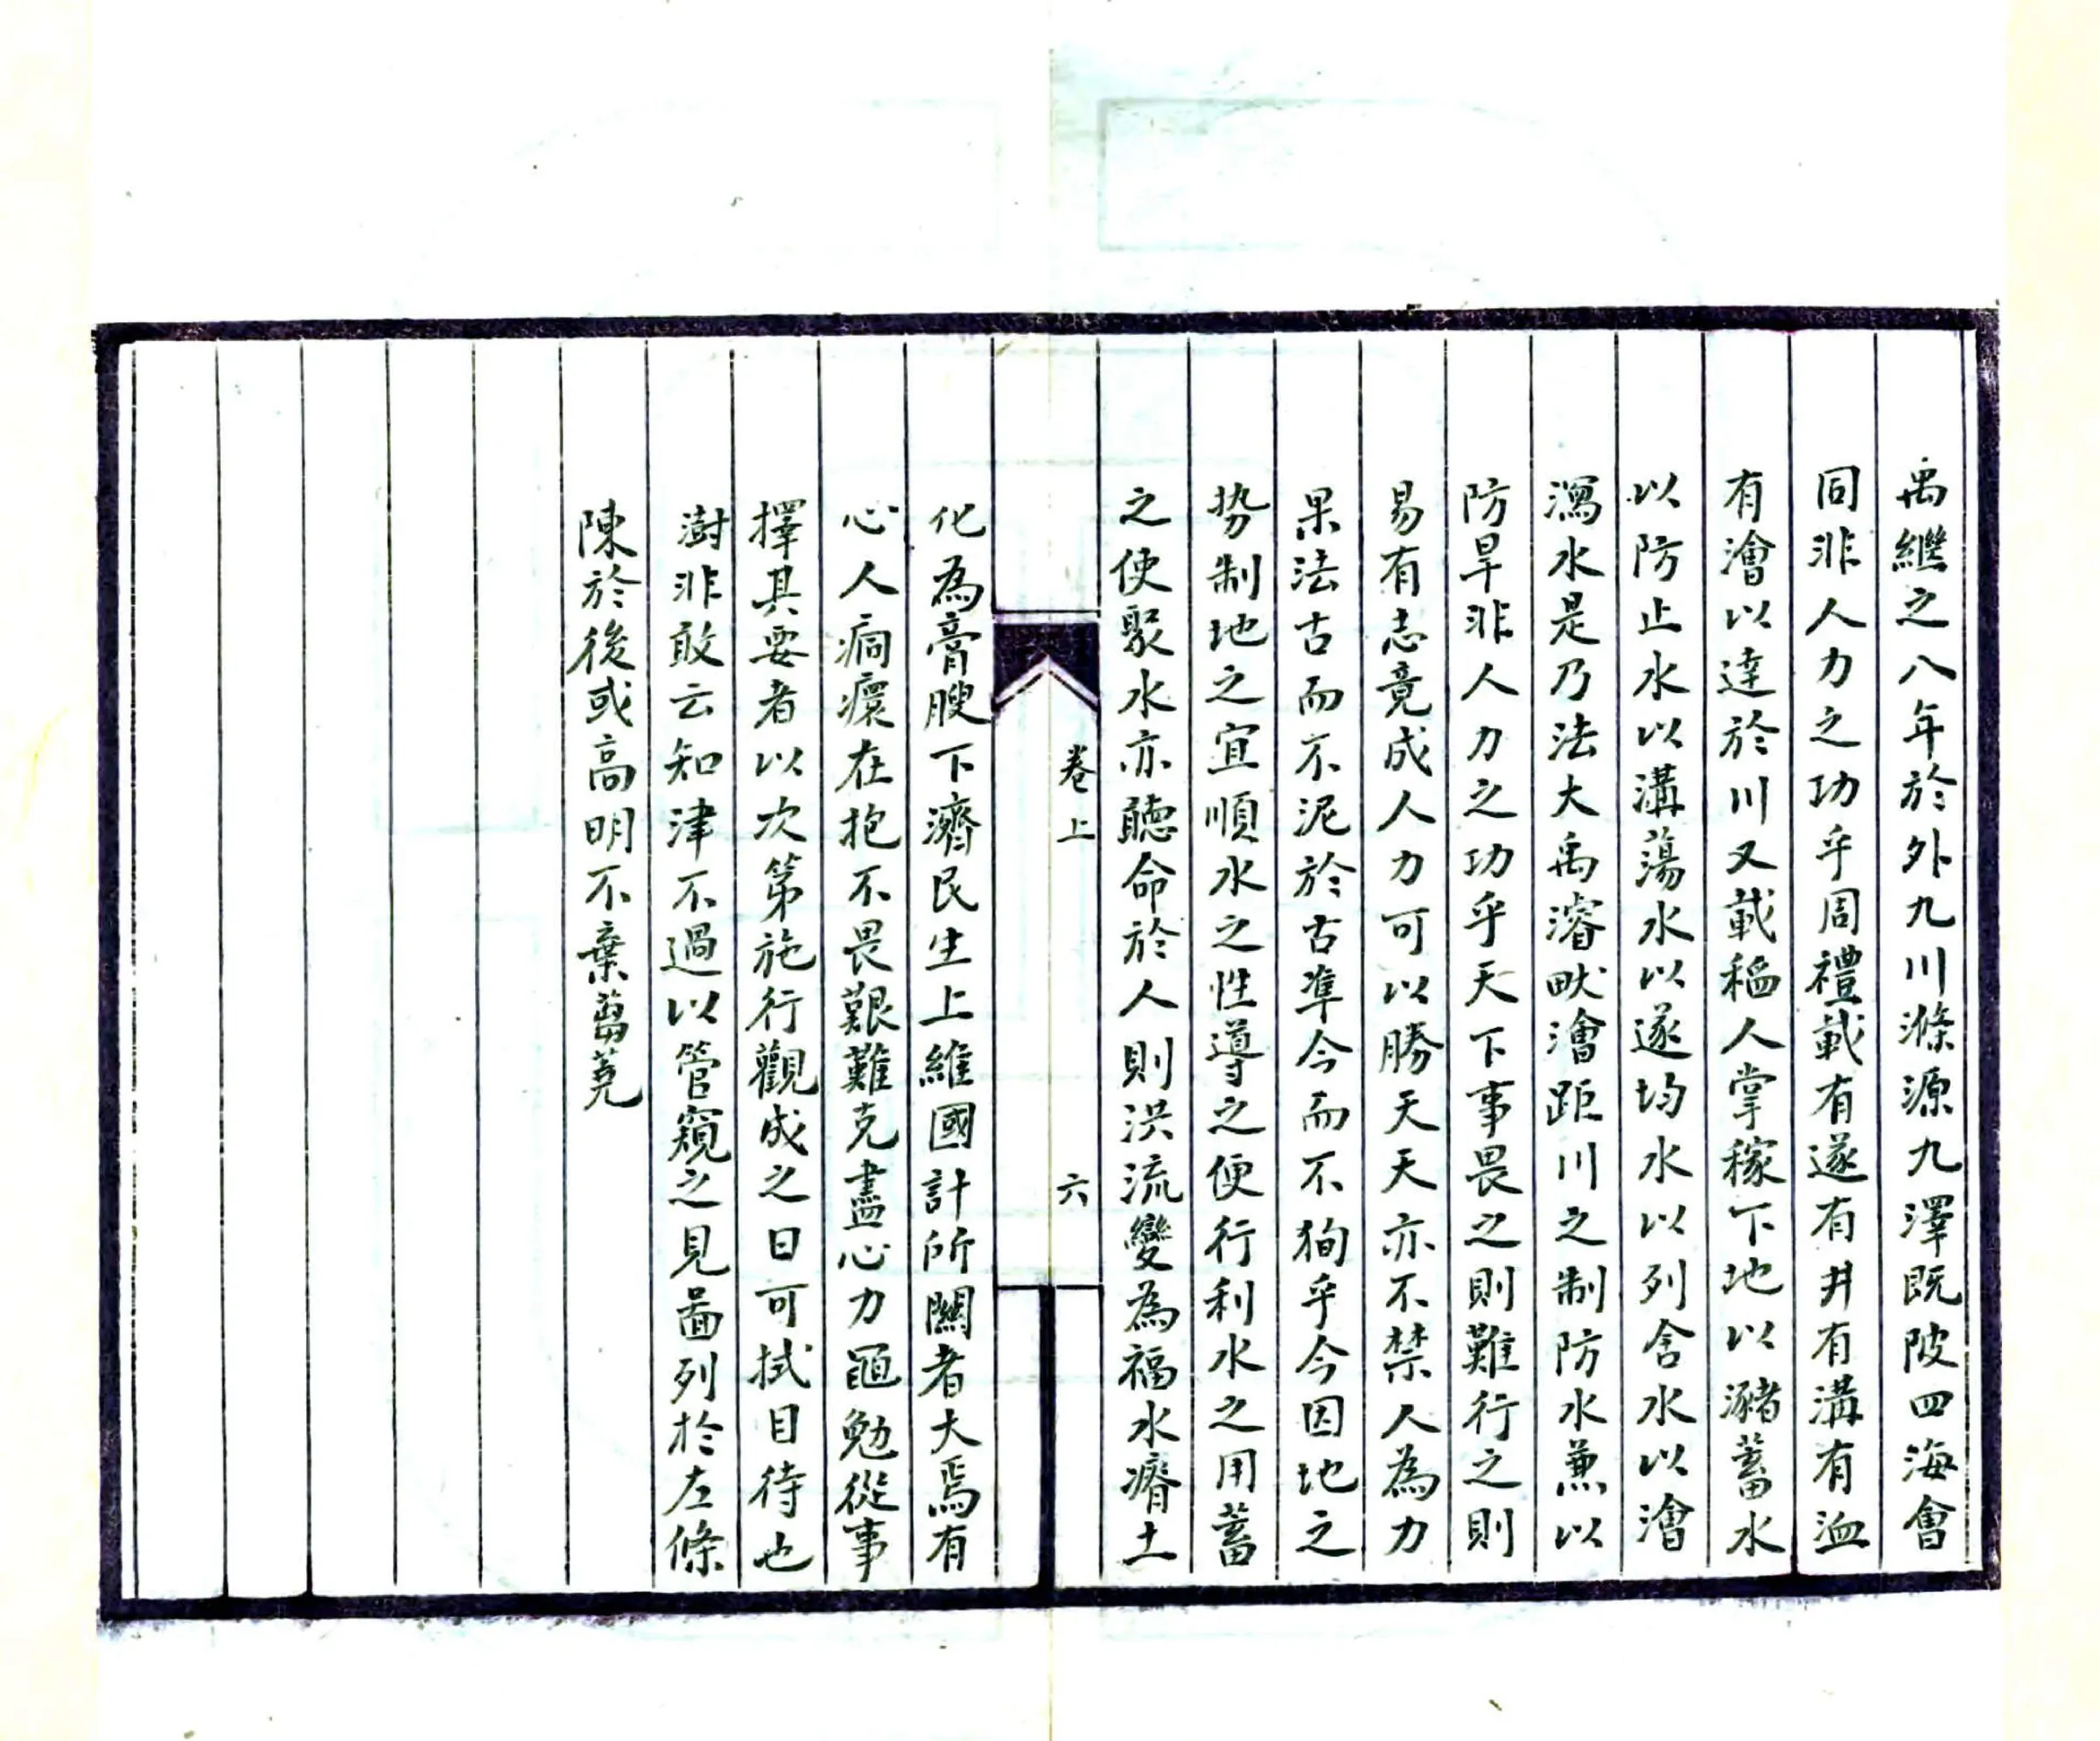 禹繼之八年於外九川滌源九澤既陂四海會
同非人力之功乎周禮載有遂有井有溝有洫
有澮以達於川又載稻人掌稼下地以瀦蓄水
以防止水以溝蕩水以遂均水以列舍水以澮
瀉水是乃法大禹濬畎澮距川之制防水兼以
防旱非人力之功乎天下事畏之則難行之則
易有志竟成人力可以勝天天亦不禁人為力
果法古而不泥於古準今而不狥乎今因地之
势制地之宜順水之性導之便行利水之用蓄
之使聚水亦聽命於人則洪流變為福水瘠土
卷上
六
化為膏腴下濟民生上維國計所關者大焉有
心人痌瘝在抱不畏艱難克盡心力黽勉從事
擇其要者以次第施行觀成之日可拭目待也
澍非敢云知津不過以管窺之見啚列於左條
陳於後或高明不棄蒭蕘